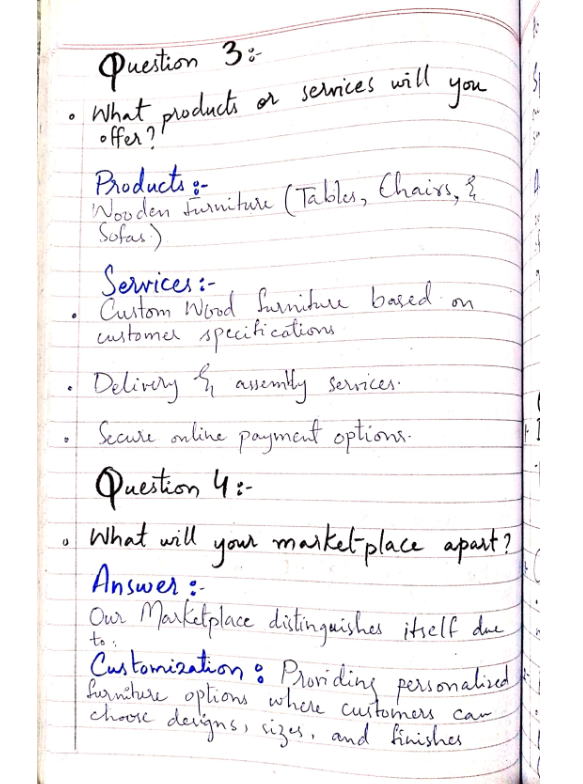 Question 3:-
• What products or services will you
offer?
Products:-
Wooden furniture (Tables, Chairs, &
Sofas.)
Services:-
• Custom Wood furniture based on
customer specifications
• Delivery & assembly services.
• Secure online payment options.
Question 4:-
• What will your market-place apart?
Answer:-
Our Marketplace distinguishes itself due
to:
Customization: Providing personalized
furniture options where customers can
choose designs, sizes, and finishes